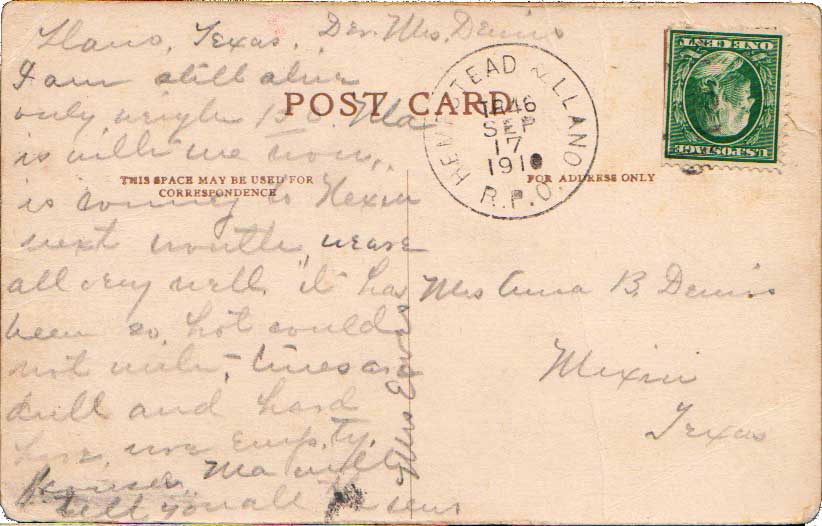 Llano, Texas, Der. Mrs. Dennis
I am still alive
only weighs 130. Ma
is with me now,
is coming to Mexia
next month, we are
all very well, it has
been so hot could
not write, times are
dull and hard
here, more Empty
houses, Ma will
tell you all the news
Mrs
POST CARD
THIS SPACE MAY BE USED FOR
CORRESPONDENCE
FOR ADDRESS ONLY
HEMPSTEAD & LLANO
TR46
SEP
17
1910
R.P.O.
U.S. POSTAGE
ONE CENT
Mrs Anna B. Dennis
Mexia
Texas